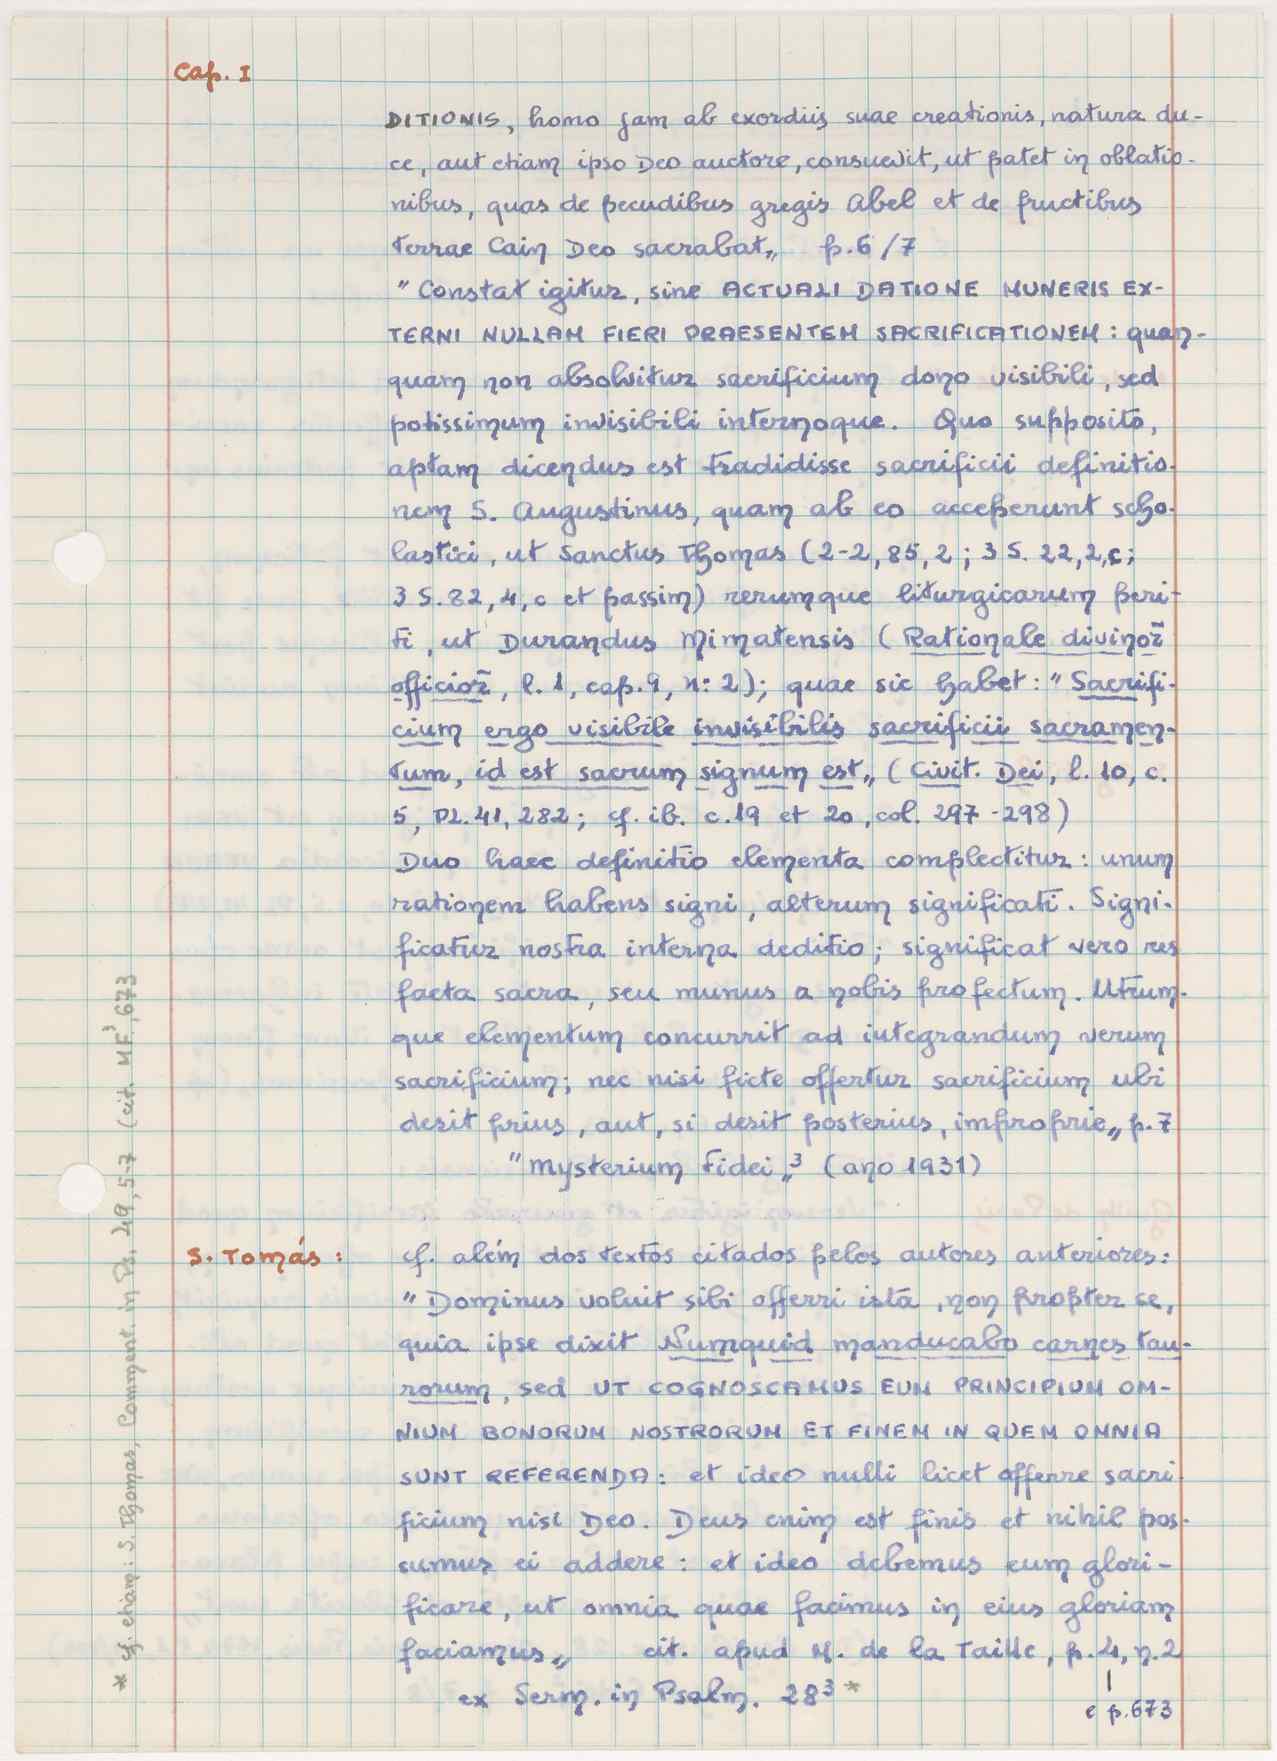 Cap. I
DITIONIS, homo jam ab exordiis suae creationis, natura du-
ce, aut etiam ipso Deo auctore, consuevit, ut patet in oblatio-
nibus, quas de pecudibus gregis Abel et de fructibus
terrae Cain Deo sacrabat„ p. 6/7
"Constat igitur, sine ACTUALI DATIONE MUNERIS EX-
TERNI NULLAM FIERI PRAESENTEM SACRIFICATIONEM: quan-
quam non absolvitur sacrificium dono visibili, sed
potissimum invisibili internoque. Quo supposito,
aptam dicendus est tradidisse sacrificii definitio-
nem S. Augustinus, quam ab eo acceperunt scho-
lastici, ut Sanctus Thomas (2-2, 85, 2; 3 S. 22, 2, c;
3 S. 82, 4, c et passim) rerumque liturgicarum peri-
ti, ut Durandus Mimatensis (Rationale divinor̃
officior̃, l. 1, cap. 9, n: 2); quae sic habet: "Sacrifi-
cium ergo visibile invisibilis sacrificii sacramen-
tum, id est sacrum signum est„ (Civit. Dei, l. 10, c.
5, PL. 41, 282; cf. ib. c. 19 et 20, col. 297-298)
Duo haec definitio elementa complectitur: unum
rationem habens signi, alterum significati. Signi-
ficatur nostra interna deditio; significat vero res
facta sacra, seu munus a nobis profectum. Utrum-
que elementum concurrit ad integrandum verum
sacrificium; nec nisi ficte offertur sacrificium ubi
desit prius, aut, si desit posterius, improprie„ p. 7
"Mysterium Fidei„³ (ano 1931)
S. Tomás: cf. além dos textos citados pelos autores anteriores:
"Dominus voluit sibi offerri ista, non propter se,
quia ipse dixit Numquid manducabo carnes tau-
rorum, sed UT COGNOSCAMUS EUM PRINCIPIUM OM-
NIUM BONORUM NOSTRORUM ET FINEM IN QUEM OMNIA
SUNT REFERENDA: et ideo nulli licet offerre sacri
ficium nisi Deo. Deus enim est finis et nihil pos-
sumus ei addere: et ideo debemus eum glori-
ficare, ut omnia quae facimus in eius gloriam
faciamus„ cit. apud M. de la Taille, p. 4, n. 2
ex Serm. in Psalm. 28³ *
e p. 673
* cf. etiam: S. Thomas, Comment. in Ps. 49, 5-7 (cit. MF³, 673